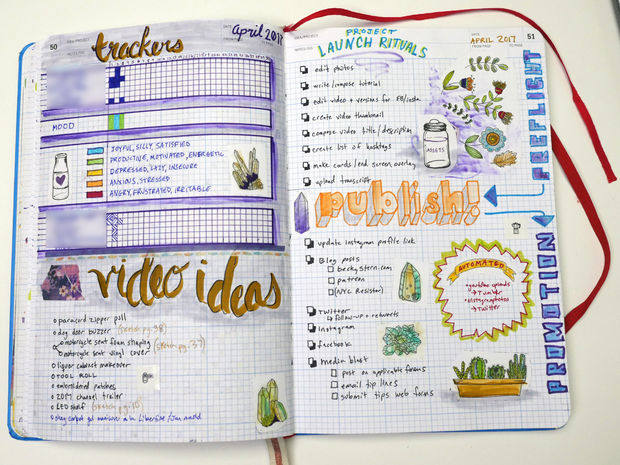 50
IDEA/PROJECT
NOTES/NO.
DATE
April 2017
trackers
MOOD
JOYFUL, SILLY, SATISFIED
PRODUCTIVE, MOTIVATED, ENERGETIC
DEPRESSED, LAZY, INSECURE
ANXIOUS, STRESSED
ANGRY, FRUSTRATED, IRRITABLE
video ideas
paracord zipper pull
dog door buzzer (sketch pg. 38)
motorcycle seat foam shaping
motorcycle seat vinyl cover (sketch pg. 37)
liquor cabinet makeover
TOOL ROLL
embroidered patches
2017 channel trailer
LED shelf
a la Liberator / Jan
IDEA/PROJECT
NOTES/NO.
PROJECT
LAUNCH RITUALS
DATE
APRIL 2017
FROM PAGE TO PAGE
51
edit photos
write/compose tutorial
edit video + versions for FB/insta
create video thumbnail
compose video title/description
create list of hashtags
make cards/end screen overlay
upload transcript
ASSETS
PREFLIGHT
publish!
update instagram profile link
Blog posts
beckystern.com
patreon
(NYC Resistor)
Twitter
↳ follow-up + retweets
Instagram
facebook
media blast
post on applicable forums
email tip lines
submit tips web forms
AUTOMATED
youtube uploads
→ Tumblr
instagram photos
→ Twitter
PROMOTION